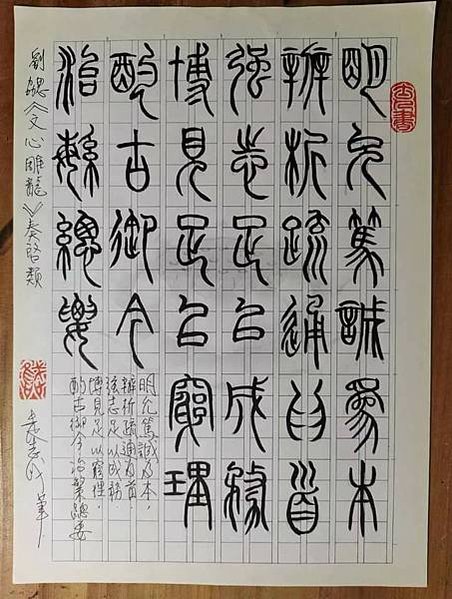 明允篤誠為本
辨析疏通為首
强志足以成務
博見足以窮理
酌古御今
治繁總要
明允篤誠为本,
辨析疏通为首,
强志足以成務,
博見足以窮理,
酌古御今治繁總要
劉勰《文心雕龍》奏啓類